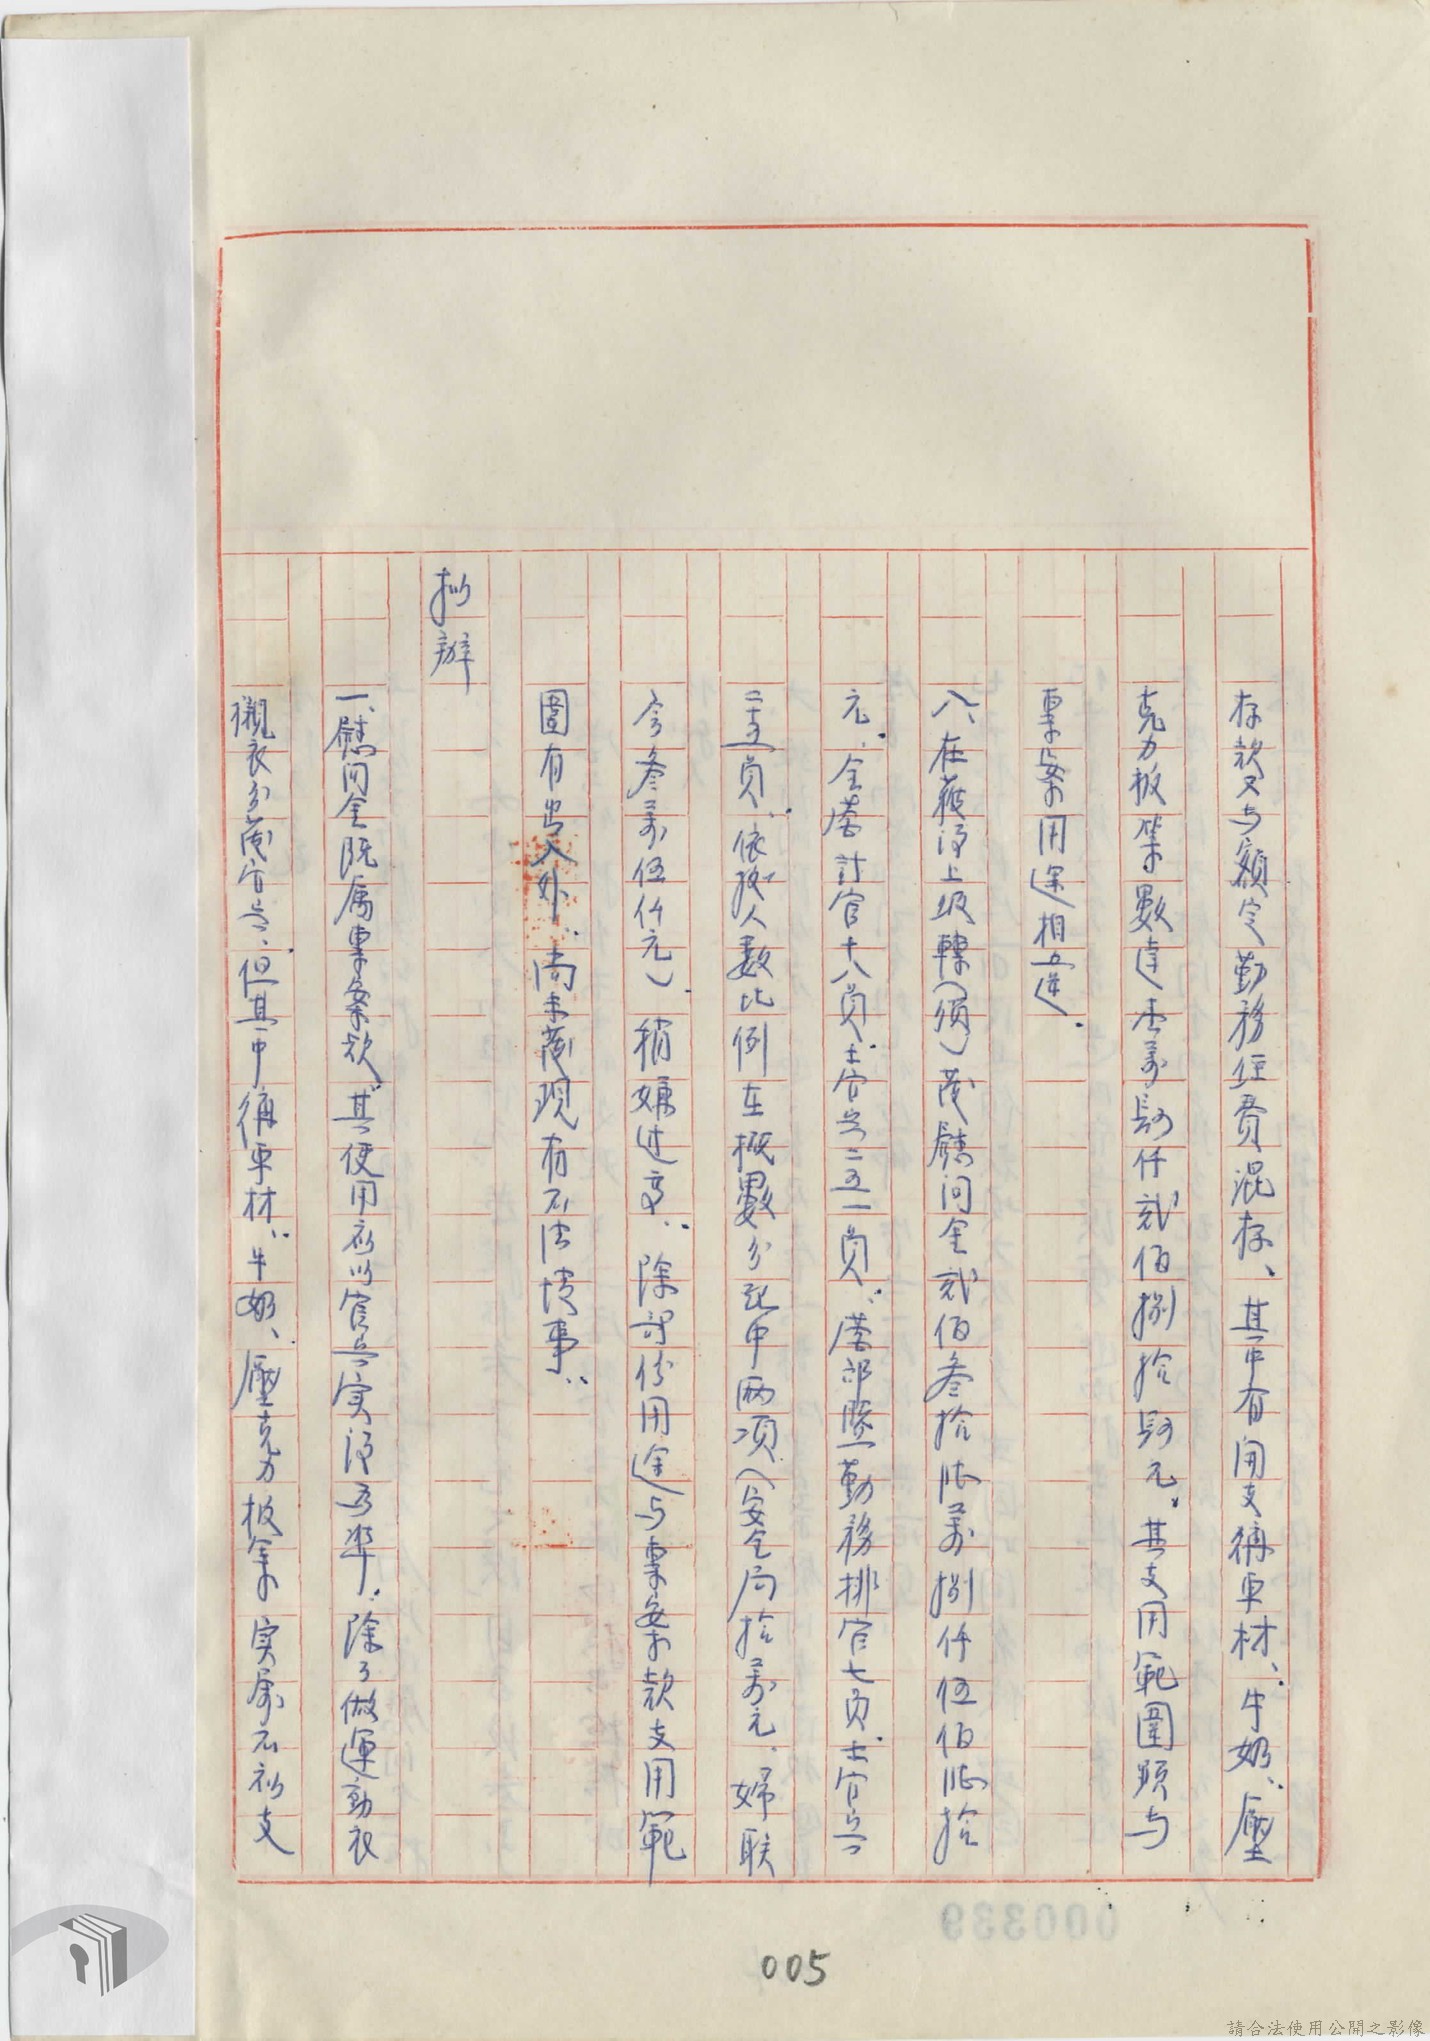 存款又与額定勤務経費混存、其中有開支補車材、牛奶、壓
克力板等數達壹萬肆仟貳佰捌拾肆元。其支用範圍顯与
專案用途相左違.
八、在獲得上級轉(頒)發慰問金貳佰叁拾陆萬捌仟伍佰陆拾
元.全營計官十八員士官兵二五一員、營部暨勤務排官七員.士官兵
二十五員、依按人數比例在概數分配中兩項(安全局拾萬元、婦联
会叁萬伍仟元)稍嫌过高、除部份用途与專案款支用範
圍有出入外、尚未發現有不法情事、
拟辦
一、慰问金既屬專案款、其使用应以官兵实得为準、除了做運動衣
襯衣分發官兵、但其中補車材、牛奶、壓克力板等实屬不应支
000339
005
請合法使用公開之影像